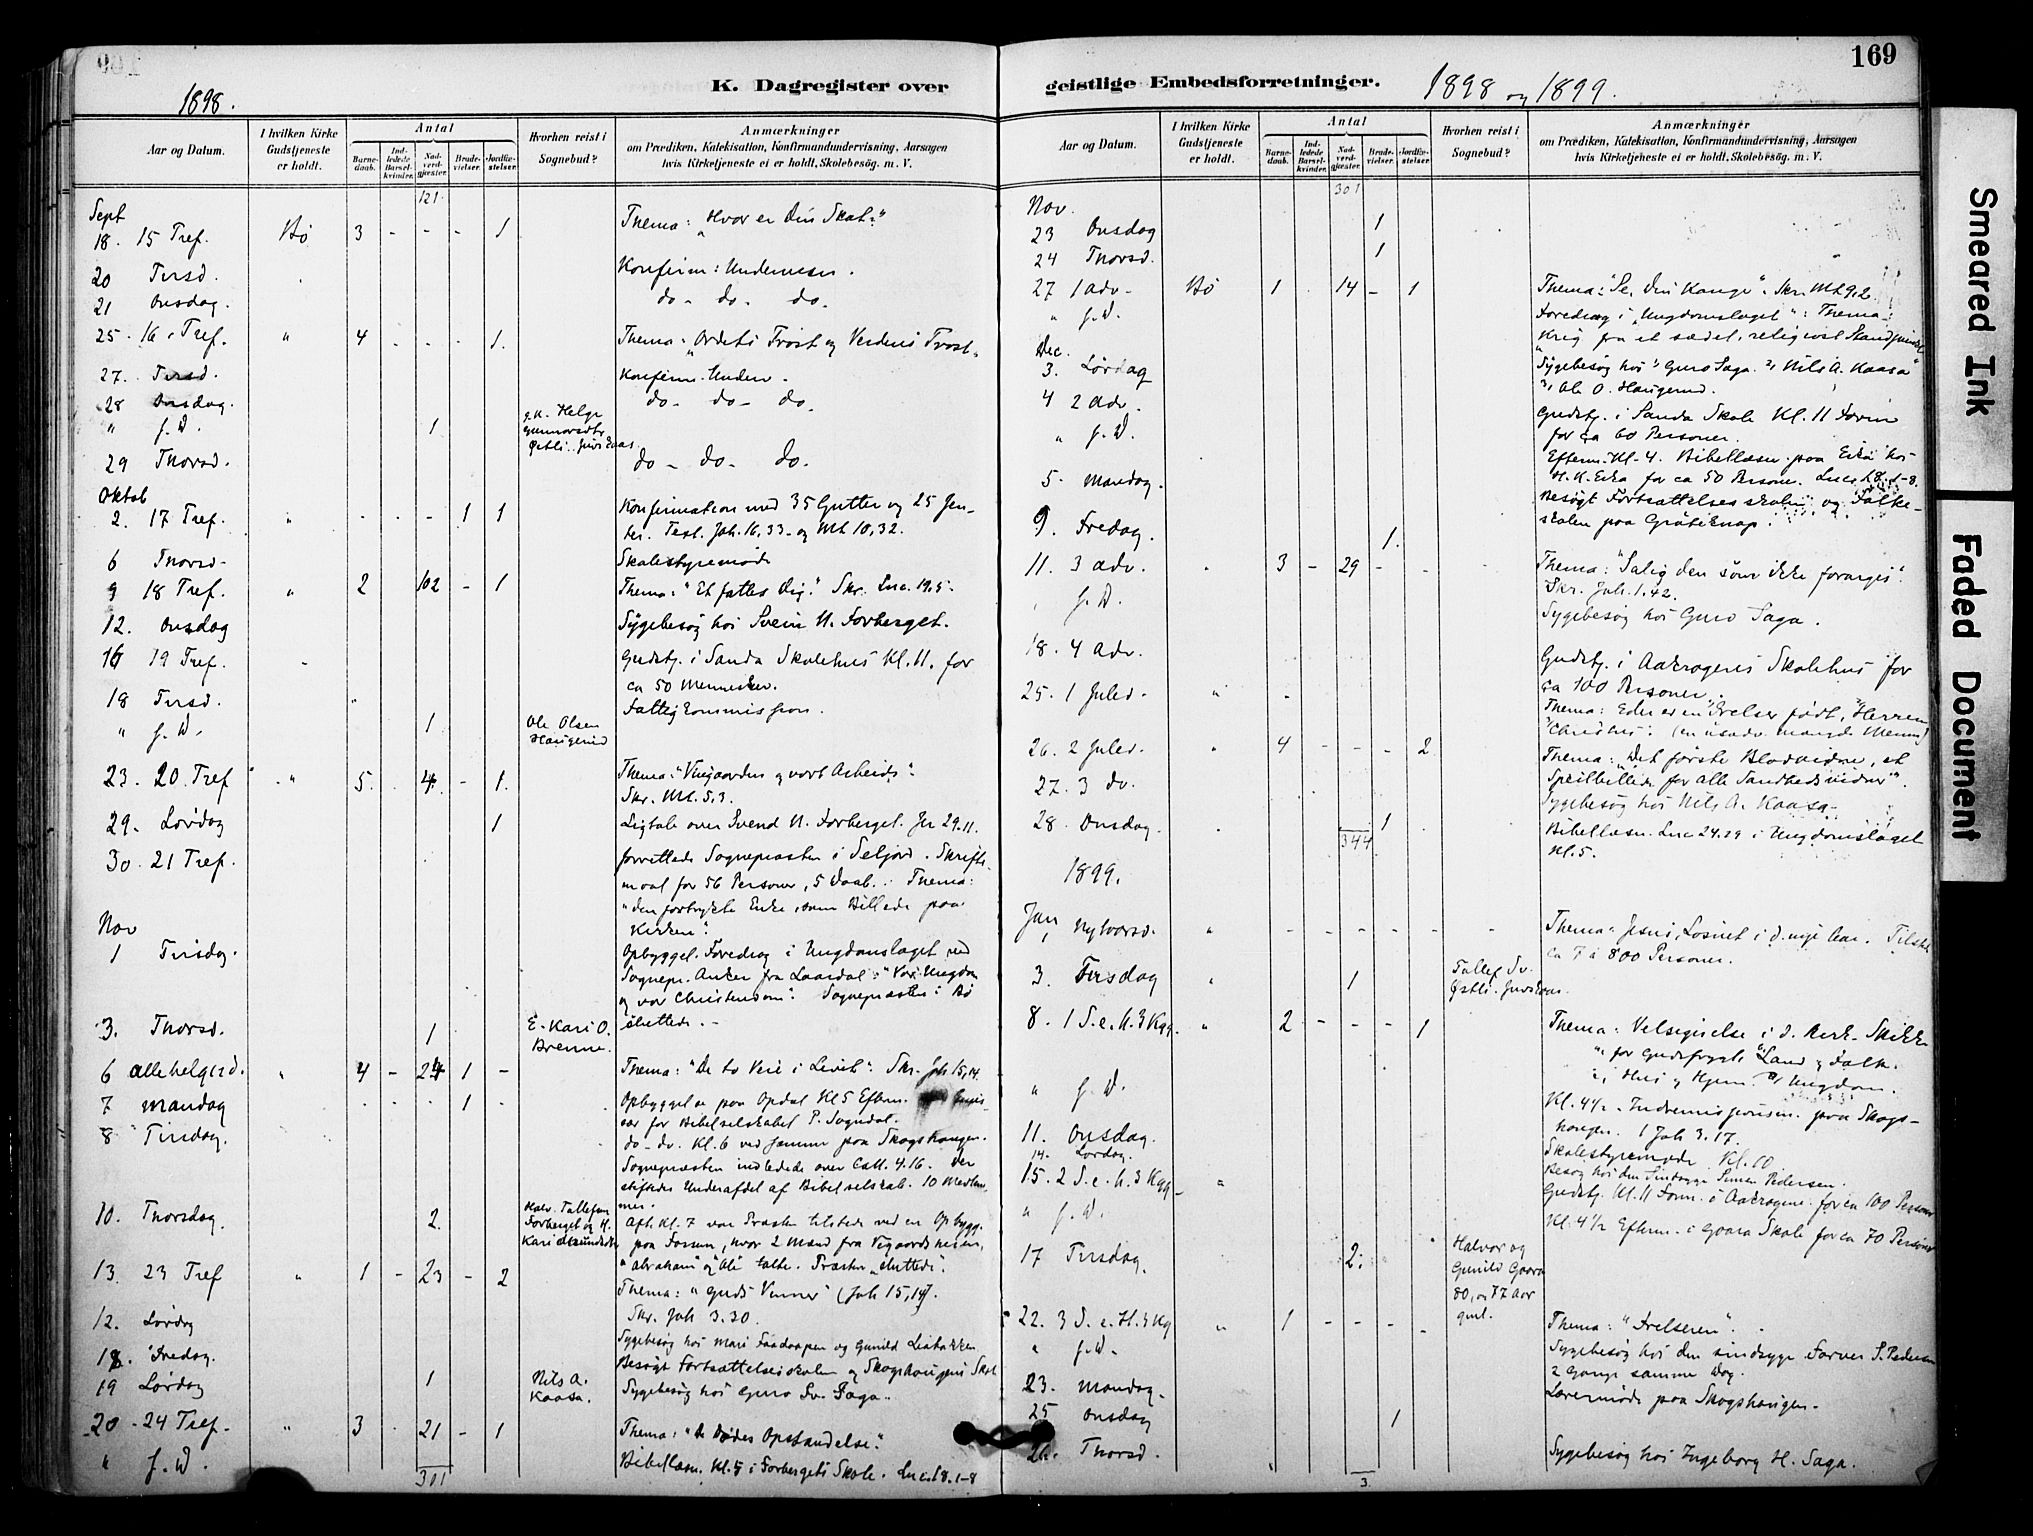 169
K. Dagregister over
1898.
Aar og Datum.
I hvilken Kirke Gudstjeneste er holdt.
Antal
Barnedaab.
Indledede Barselkvinder.
Nadverdgjæster.
Brudevielser.
Jordfæstelser.
Hvorhen reist i Sognebud?
Anmærkninger
om Prædiken, Katekisation, Konfirmandundervisning, Aarsagen
hvis Kirketjeneste ei er holdt, Skolebesög. m. V.
121
Sept
18. 15 Tref. Bø 3 - - - 1 Thema: "Hvor er din Skat?"
20 Tirsd. Konfirm: Undervisn.
21 Onsdag. do - do - do -
25. 16. Tref. " 4 - - - 1. Thema: "Ordets Trøst og Verdens Trøst"
27. Tirsd. Konfirm. Underv.
28 Onsdag. do - do - do.
" s. D. 1 Helge Gunnarsdtr.
29 Thorsd. do - do - do.
Oktob
2. 17 Tref. " - - - 1 1 Konfirmation med 35 Gutter og 25 Jen-
ter. Text. Joh. 16,33 og Mt 10,32.
6 Thorsd. Skolestyremøde
9 18 Tref. " 2 102 - 1 Thema: "Et fattes dig." Skr. Luc. 19,5.
12. Onsdag Sygebesøg hos Svein N. Forberget.
16 19 Tref. - Gudstj. i Sanda Skolehus Kl. 11. for
ca 50 Mennesker.
18 Tirsd. Fattigkommission.
" s. D. 1 Ole Olsen Haugerud
23. 20. Tref " 5. 4. - 1. Thema: "Vingaarden og vort Arbeide".
Skr. Mt. 5,3.
29. Lørdag 1 Ligtale over Svend N. Forberget. Jer 29.11.
30. 21 Tref. forrettede Sognepræsten i Seljord. Skrifte-
maal for 56 Personer, 5 Daab. Thema:
"den fortrykte Enke, som Billede paa
Kirken".
Nov
1 Tirsdag. Opbyggel. Foredrag i Ungdomslaget ved
Sognepr. Anker fra Laardal: "Vor Ungdom
og vor Christendom". Sognepræsten i Bø
sluttede. -
3. Thorsd. 1 E. Kari O. Brenne.
6 Allehelgnsd. " 4 - 24 1 - Thema: "De to Veie i Livet". Skr. Joh 15,14.
7 Mandag 1 Opbyggelse paa Opdal Kl 5 Efterm.
sær for Bibelselskabet P. Sogndal.
8 Tirsdag. do - do. Kl. 6 ved samme paa Skogshaugen.
Sognepræsten indledede over Coll. 4.16. Der
stiftedes Underafdel af Bibelselskab. 10 Medlem-
mer.
10. Thorsdag. 2. Halv. Tollefsen Forberget og H. Kari Amundsdtr Aft. Kl. 7 var Præsten tilstede ved en Opbygg.
paa Fossum, hvor 2 Mænd fra Vegaardsheien,
"Abraham" og "Ole" talte. Præsten sluttede.
13. 23 Tref " 1 - 23 - 2 Thema: "Guds Venner" (Joh 15,14).
Skr. Joh 3.30.
12. Lørdag Sygebesøg hos Mari og Gunild
18. Fredag. Besøgt Fortsættelsesskolen og Skogshaugens Skol
19 Lørdag 1 Nils A. Kaasa. Sygebesøg hos Guro Sv. Saga.
20 - 24 Tref. " 3 21 - 1 Thema: "De Dødes Opstandelse".
" s. D. Bibellæsn. Kl. 5 i Forbergets Skole. Luc. 18.1-8
301
geistlige Embedsforretninger.
1898 og 1899.
169
Aar og Datum.
I hvilken Kirke Gudstjeneste er holdt.
Antal
Barnedaab.
Indledede Barselkvinder.
Nadverdgjæster.
Brudevielser.
Jordfæstelser.
Hvorhen reist i Sognebud?
Anmærkninger
om Prædiken, Katekisation, Konfirmandundervisning, Aarsagen
hvis Kirketjeneste ei er holdt, Skolebesög. m. V.
301
Nov.
23 Onsdag 1
24 Thorsd. 1
27 1 Adv - Bø 1 14 - 1 Thema: "Se, din Konge". Skr. Mt 9,2.
" s. D. Foredrag i "Ungdomslaget": Thema:
Krig fra et sædel. religiøst Standpunkt
Dec.
3. Lørdag Sygebesøg hos 1) Guro Saga 2) Nils A. Kaasa
3) Ole O. Haugerud.
4 2 Adv. Gudstj. i Sanda Skole Kl. 11 Form
for ca 60 Personer.
" s. D. Efterm. Kl. 4. Bibellæsn. paa Eika hos
H. K. Eika for ca 50 Person. Luc. 18.1-8.
5. Mandag. Besøgt Fortsættelsesskolen og Folke-
skolen paa Gråtiknap.
9. Fredag. 1.
11. 3 Adv. " 3 - 29 - - Thema: "Salig den som ikke forarges".
Skr. Joh. 1.42.
" s. D. Sygebesøg hos Guro Saga.
18. 4 Adv. Gudstj. i Aakrogens Skolehus for
ca 100 Personer.
25. 1 Juled. " - Thema: Eder er en Frelser født, "Herren
Christus".
26. 2 Juled. " 4 - - - 2 Thema: "Det første Blodvidne, et
Speilbillede for alle Sandhedsvidner".
27. 3 do. Sygebesøg hos Nils A. Kaasa.
28. Onsdag. 1 Bibellæsn. Luc 24.29 i Ungdomslaget
Kl. 5.
344
1899.
Jan
1 Nytaarsd. " - - - - - - Thema: Jesus, Løsnet i d. nye Aar. Tilst.
ca 7 à 800 Personer.
3. Tirsdag " 1 Tollef Sv.
8. 1 S. e. H. 3 Kgg. " 2 - - - 1 Thema: Velsignelse i d. Kirk. Skikke
for Gudsfrygt: Land og Folk.
Hus og Hjem. Ungdom.
" s. D. Kl. 4½. Indremissionsm. paa Skogs-
haugen. 1 Joh 3.17.
11. Onsdag. Skolestyremøde Kl. 10
14. Lørdag. Besøg hos den Sindssyge Simen Pedersen.
15. 2 S. e. H. 3 Kgg. " Gudstj. Kl. 11 Form. i Aakrogene for ca 100 Person
" s. D. Kl. 4½ Efterm. i Gvara Skole for ca 70 Person
17 Tirsdag. 2. Halvor og Gunild Gvara 80, og 77 Aar gml.
22. 3 S. e. H. 3 Kg " 1 - - - - Thema: "Frelseren".
" s. D. Sygebesøg hos den sindssyge Farver S. Pedersen
2 Gange samme Dag.
23. Mandag. Læremøde paa Skogshaugen.
25 Onsdag 1
26. Thorsd. Sygebesøg hos Ingeborg H. Saga.
3.
Smeared Ink
Faded Document